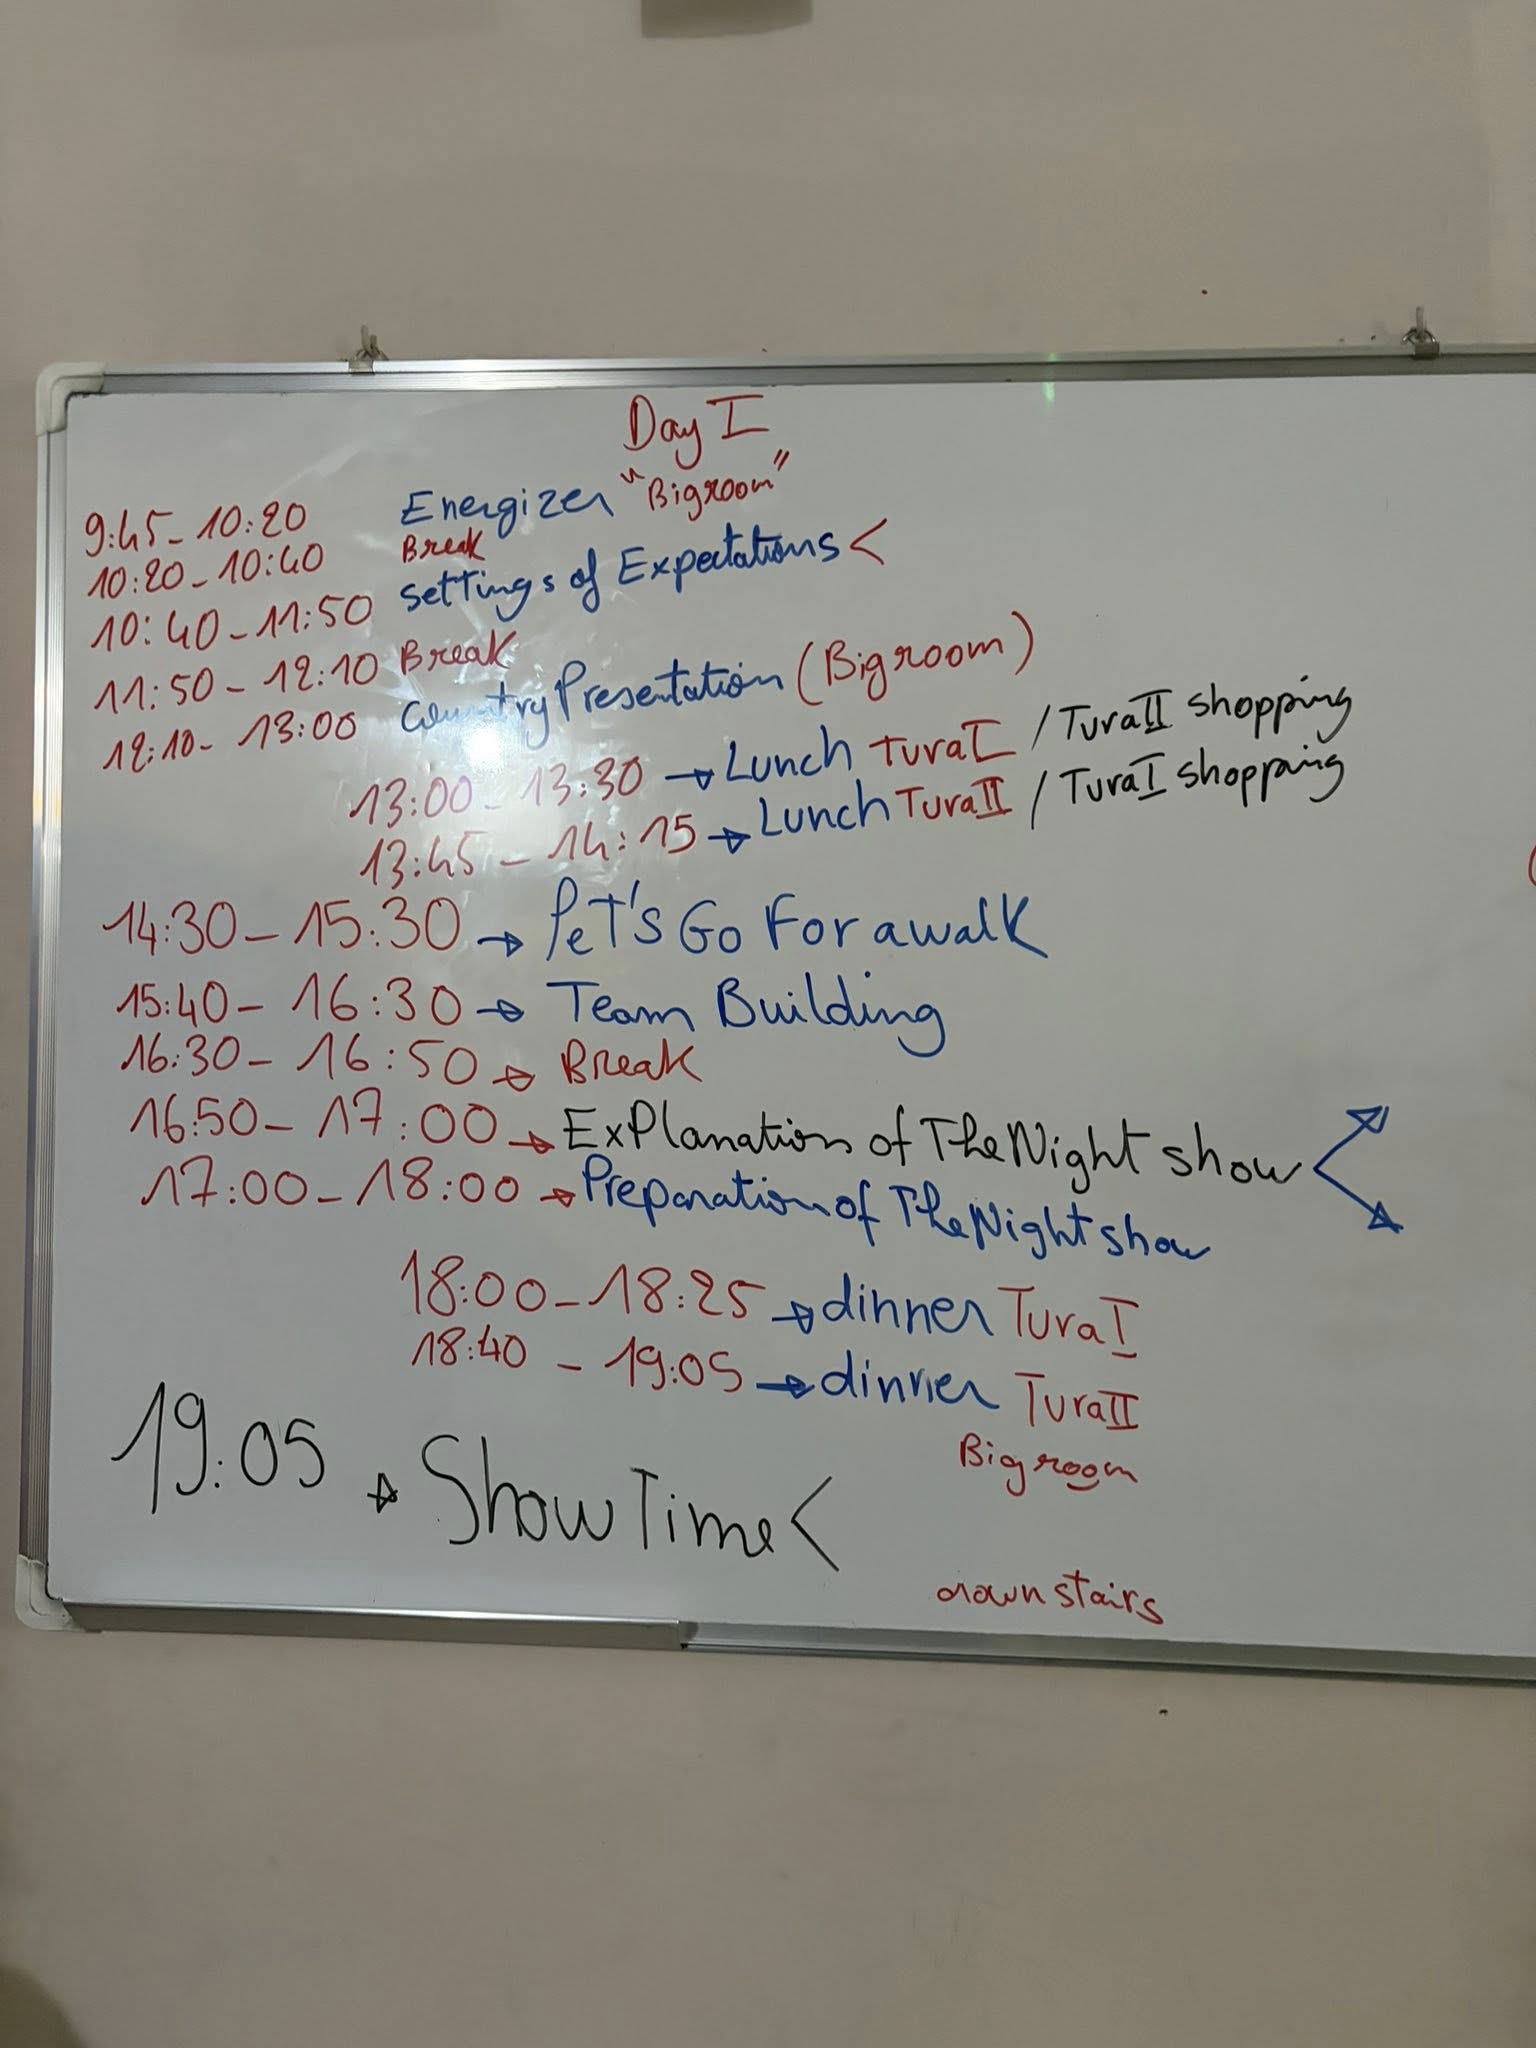 Day I
9:45 - 10:20 Energizer "Bigroom"
10:20 - 10:40 Break
10:40 - 11:50 settings of Expectations <
11:50 - 12:10 Break
12:10 - 13:00 Country Presentation (Bigroom)
13:00 - 13:30 → Lunch Tura I / Tura II shopping
13:45 - 14:15 → Lunch Tura II / Tura I shopping
14:30 - 15:30 → Let's Go For a walk
15:40 - 16:30 → Team Building
16:30 - 16:50 → Break
16:50 - 17:00 → ExPlanation of The Night show
17:00 - 18:00 → Preparation of The Night show
18:00 - 18:25 → dinner Tura I
18:40 - 19:05 → dinner Tura II
Bigroom
19:05 → Show Time <
downstairs